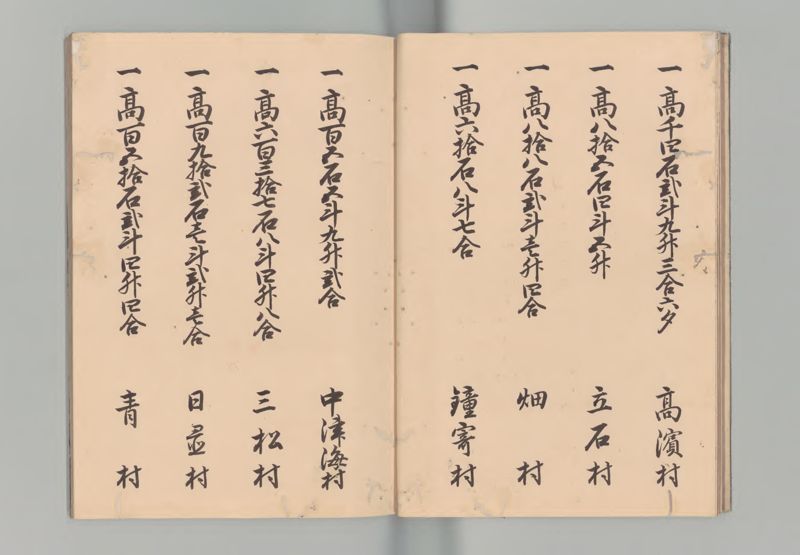 一高千四石弐斗九升三合六夕 高濱村
一高八拾五石四斗五升 立石村
一高八拾八石弐斗壱升四合 畑村
一高六拾石八斗七合 鐘寄村
一高百五石五斗九升弐合 中津海村
一高六百三拾七石八斗四升八合 三松村
一高百九拾弐石壱斗弐升壱合 日置村
一高百五拾石弐斗四升四合 青村